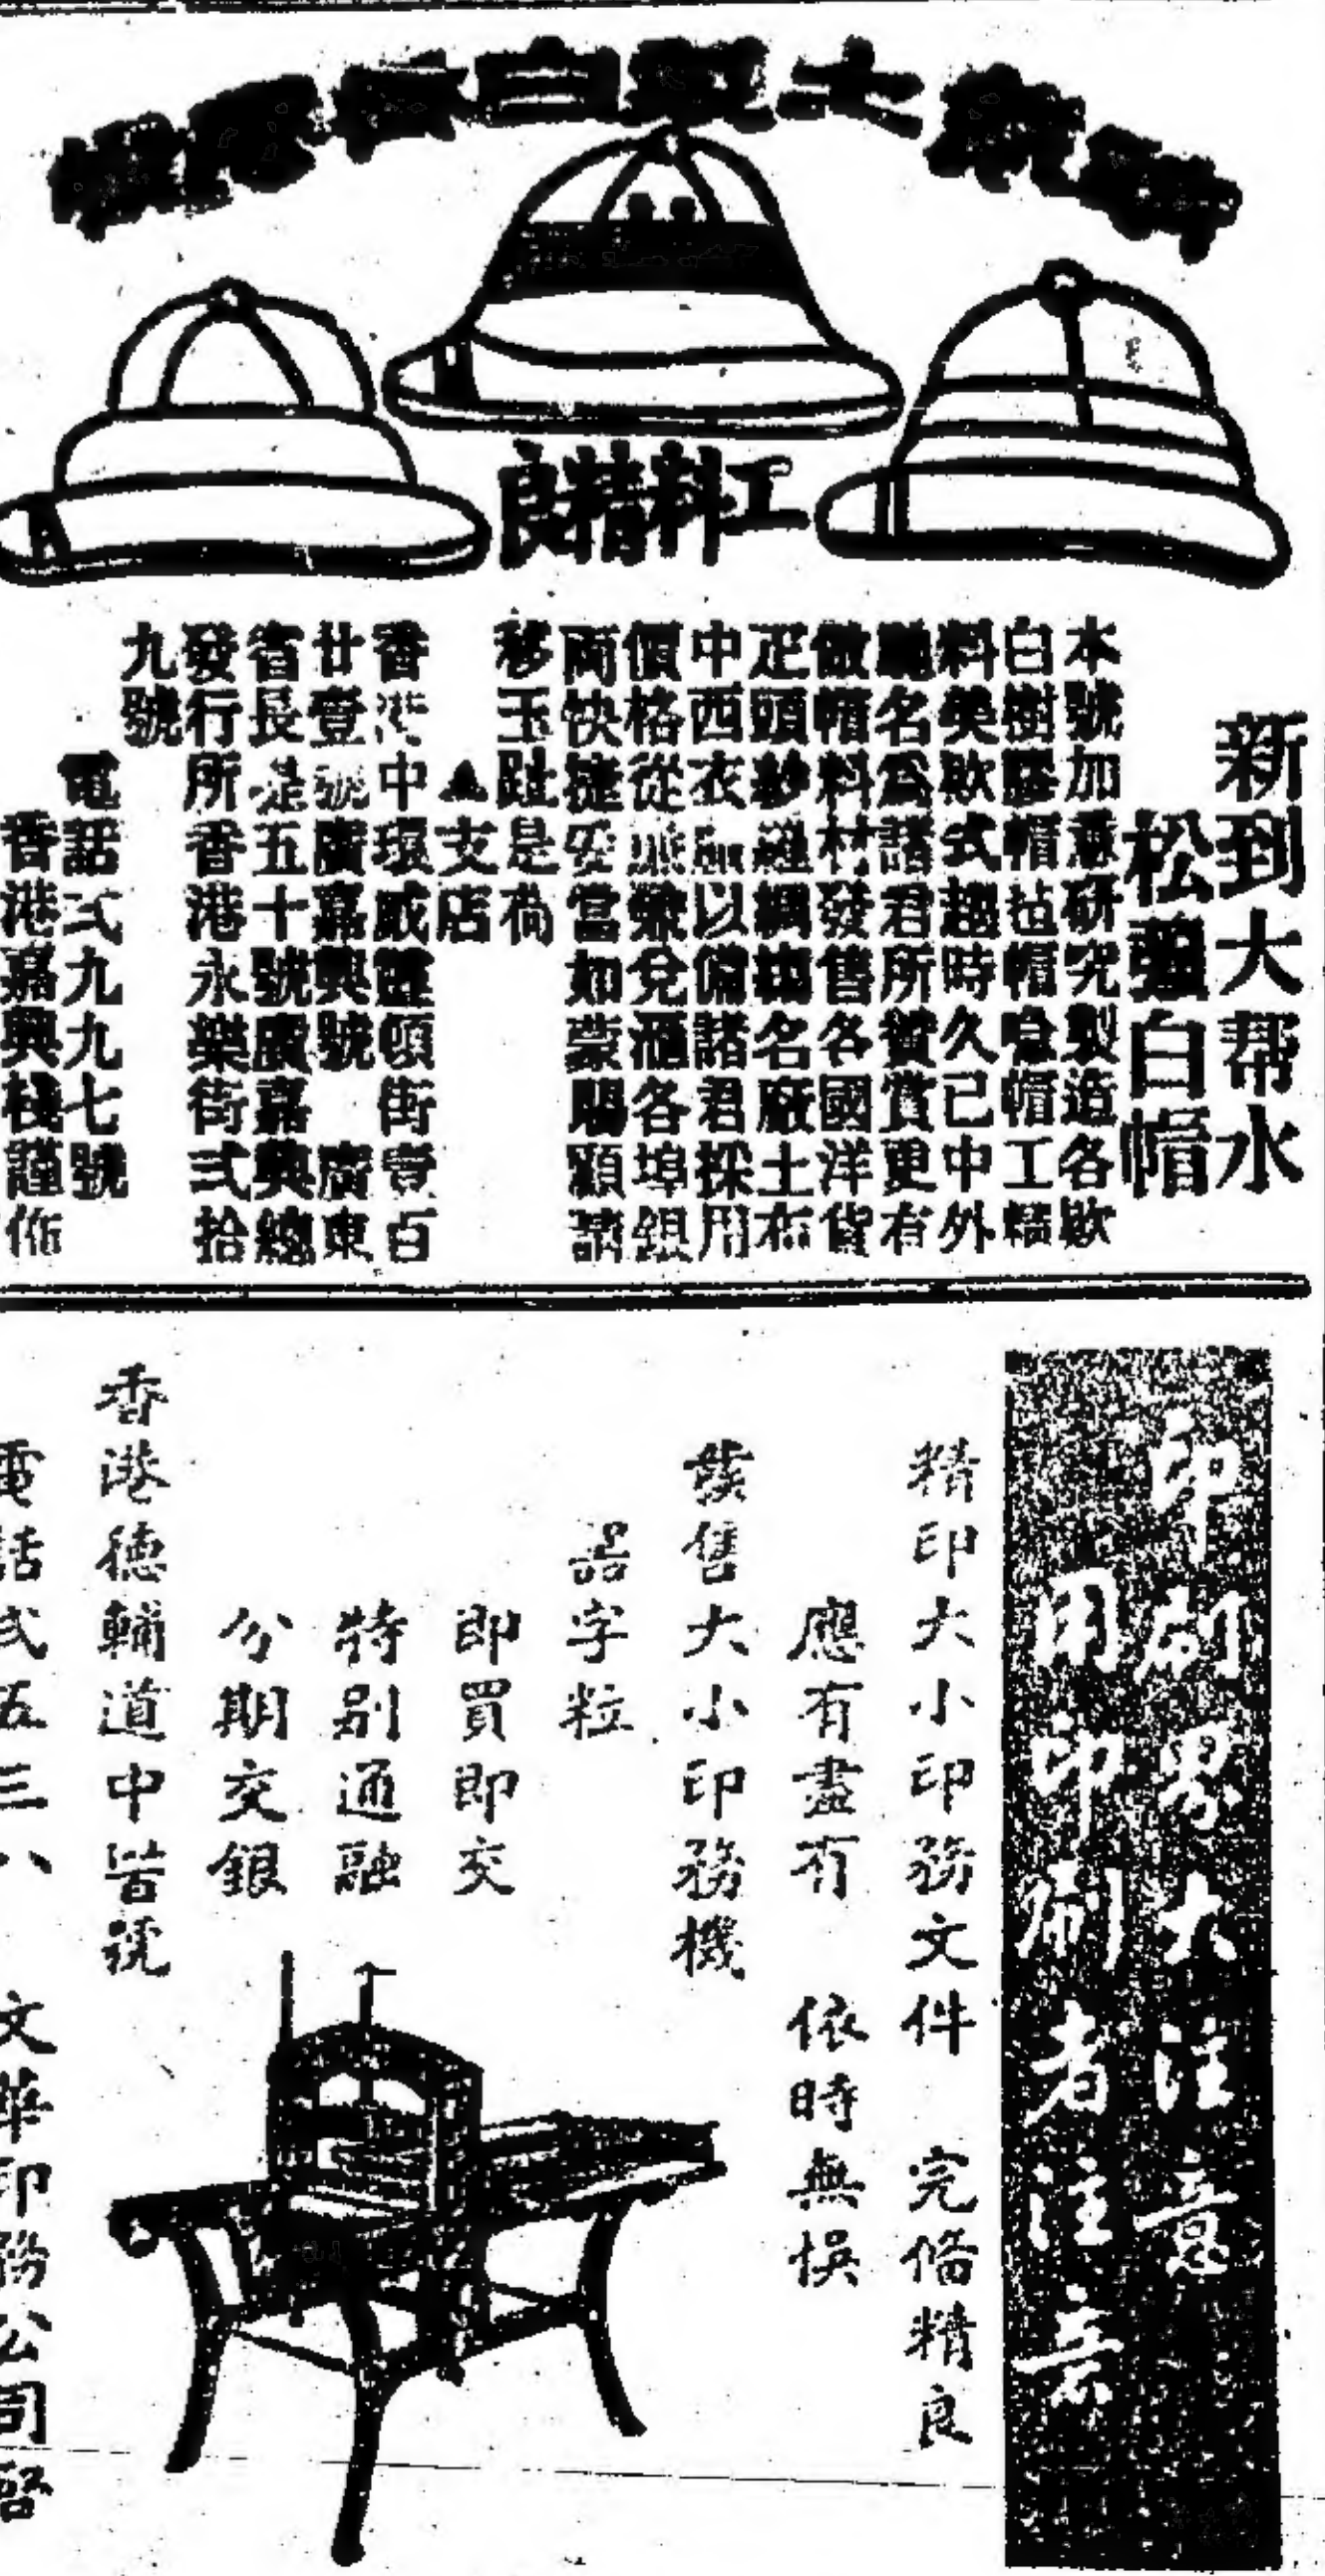 工料精良
新到大帮水
松強白帽
本號加意研究製造各欵
白樹膠帽毡帽傘帽工精
料美欵式趨時久已中外
馳名為諸君所贊賞更有
做帽料材發售各國洋貨
疋頭紗羅綢緞名廠土布
中西衣服以備諸君採用
價格從廉兼兌滙各埠銀
両快捷妥當如蒙賜顧請
移玉趾是荷
▲支店
香港中環威靈頓街壹百
廿壹號廣嘉興號 廣東
省長堤五十號廣嘉興總
發行所香港永樂街弍拾
九號
電話弍九九七號
香港嘉興棧謹佈
印刷界大注意
用印刷者注意
精印大小印務文件 完備精良
應有盡有 依時無悞
發售大小印務機
器字粒
即買即交
特別通融
分期交銀
香港德輔道中 號
電話弍五三八 文華印務公司啓